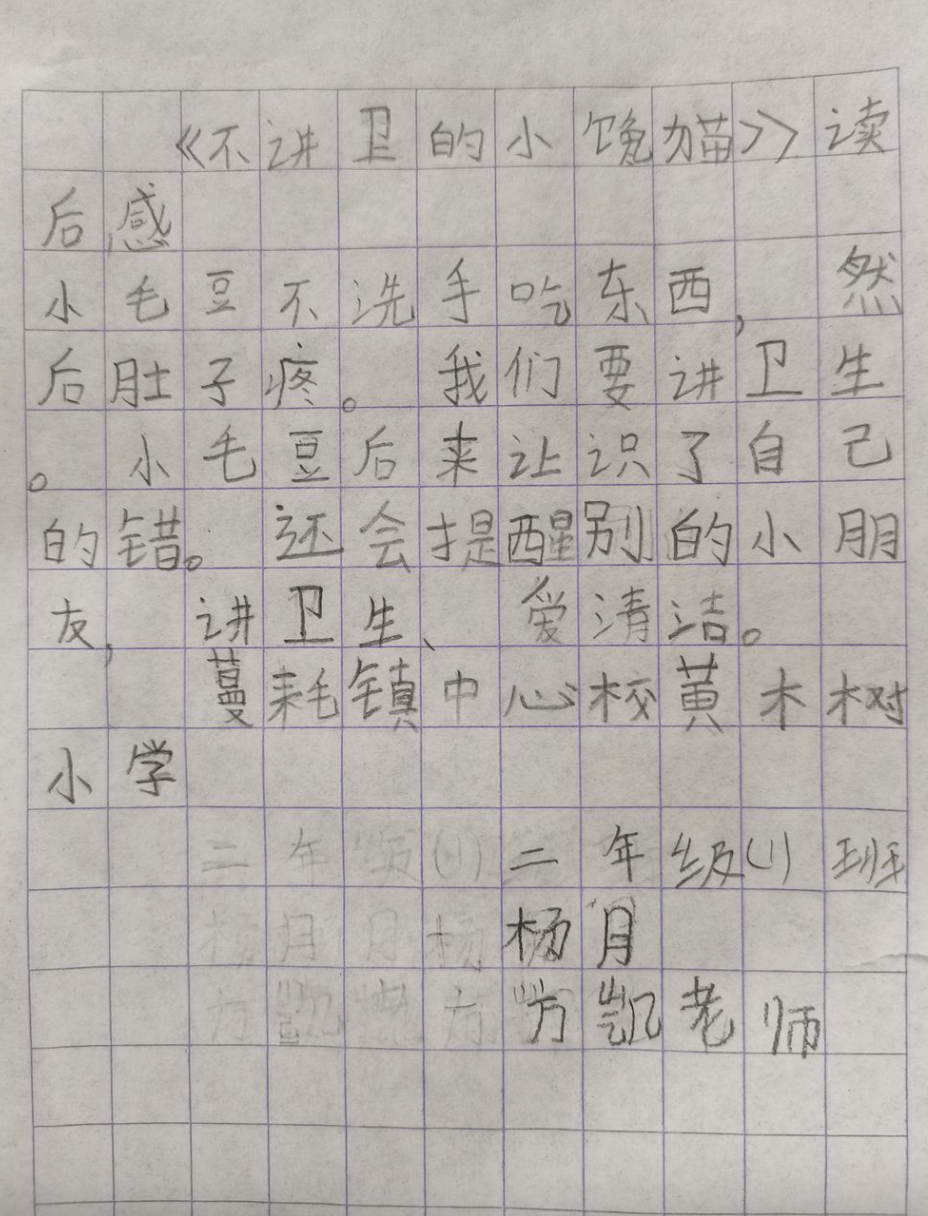 《不讲卫的小馋猫》读
后感
小毛豆不洗手吃东西，然
后肚子疼。我们要讲卫生
。小毛豆后来让识了自己
的错。还会提醒别的小朋
友，讲卫生、爱清洁。
蔓耗镇中心校黄木树
小学
二年级(1)二年级(1)班
杨月月杨杨月
方凯凯方方凯老师